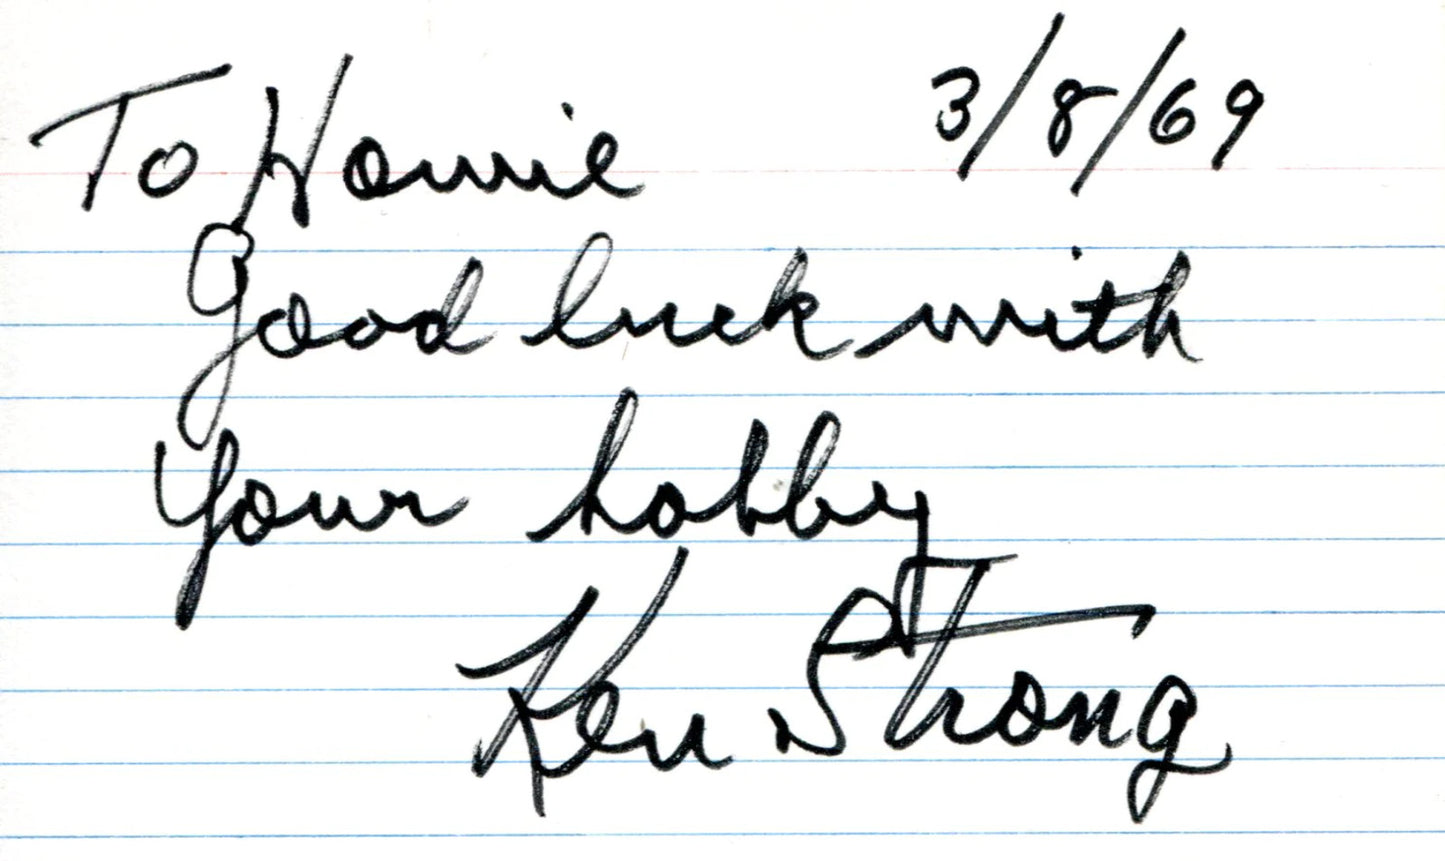 To Howie 3/8/69
Good luck with
your hobby
Ken Strong